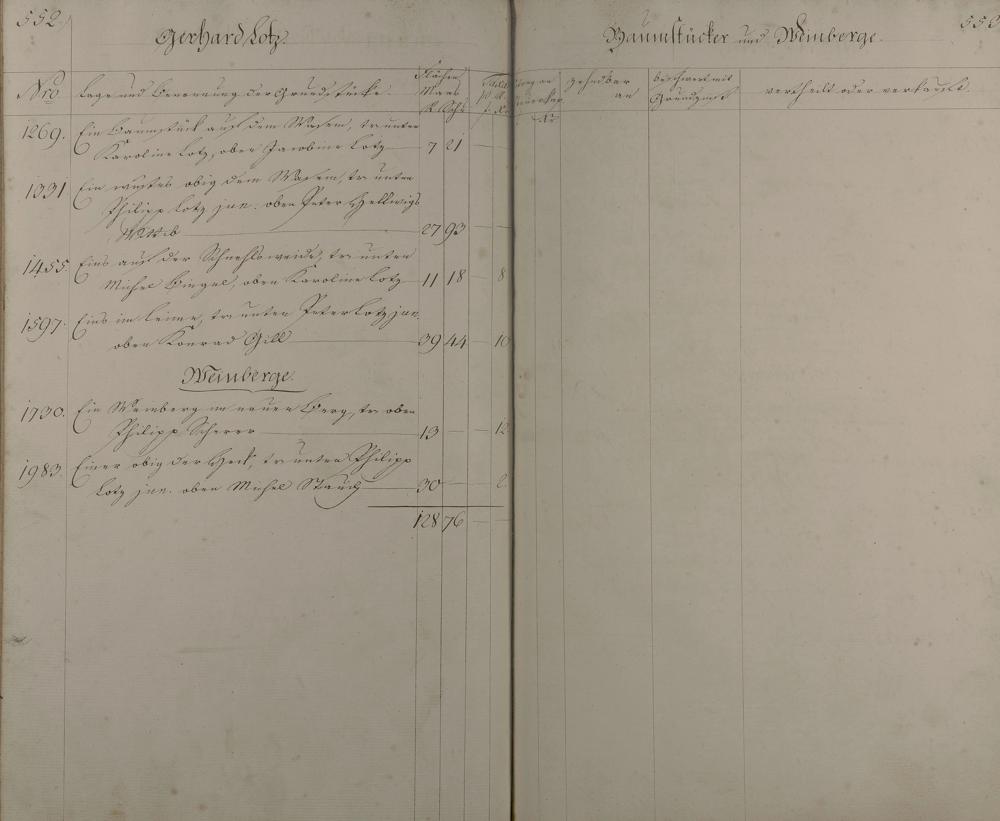 552.
Gerhard Lotz.
Baumstücker und Weinberge.
Nro
Lage und Benennung der Grundstücke.
Flächen
Maas
R. Schh
zehendbar
an
beschwert mit
Grundzinß
vertheilt oder verkauft.
1269. Ein Baumstück auf dem Wasem, tr unten
Karoline Lotz, oben Jacobine Lotz 7 21
1331 Ein wustes obig dem Wasem, tr unten
Philipp Lotz jun. oben Peter Hellwigs
Wittib 27 93
1455. Eins auf der Schnehlsweide, tr unten
Michel Bingel, oben Karoline Lotz 11 18 8
1597. Eins im Leime, tr unten Peter Lotz jun.
oben Konrad Gill 39 44 10
Weinberge.
1730. Ein Weinberg im neuen Berg, tr oben
Philipp Scherer 13 — — 12
1983. Einer obig der Heck, tr unten Philipp
Lotz jun. oben Michel Staudt 30 — — 2
128 76